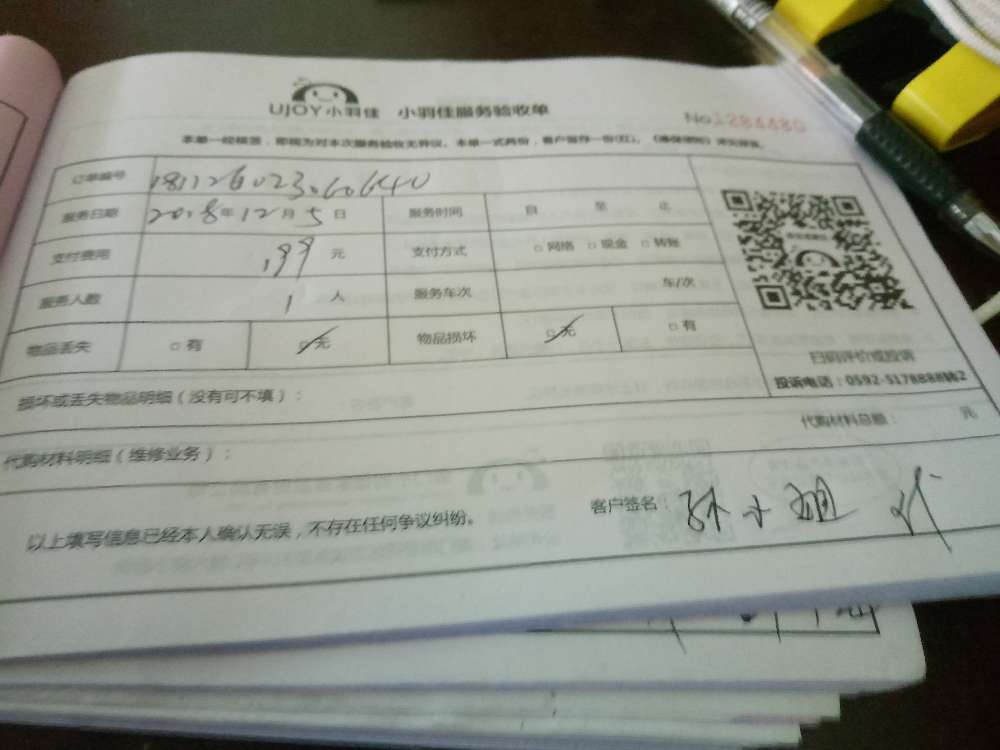 UJOY小羽佳 小羽佳服务验收单 No 1284480
本单一经核签，即视为对本次服务验收无异议。本单一式两份，客户留存一份(红)。
订单编号 181126023060640
服务日期 2018年12月5日 服务时间 自 至 止
支付费用 199 元 支付方式 □网络 □现金 □转账
服务人数 1 人 服务车次 车/次
物品丢失 □有 ☑无 物品损坏 ☑无 □有
扫码评价或投诉
投诉电话：0592-5178888转2
损坏或丢失物品明细（没有可不填）：
代购材料明细（维修业务）： 代购材料总额： 元
以上填写信息已经本人确认无误，不存在任何争议纠纷。 客户签名：孙小姐 代